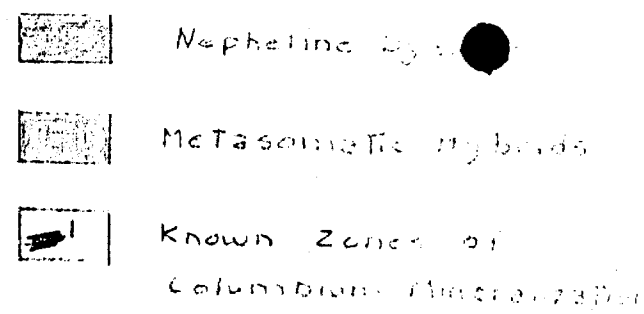 Nepheline
Metasomatic Hybrids
Known Zones of
Columbium Mineralization